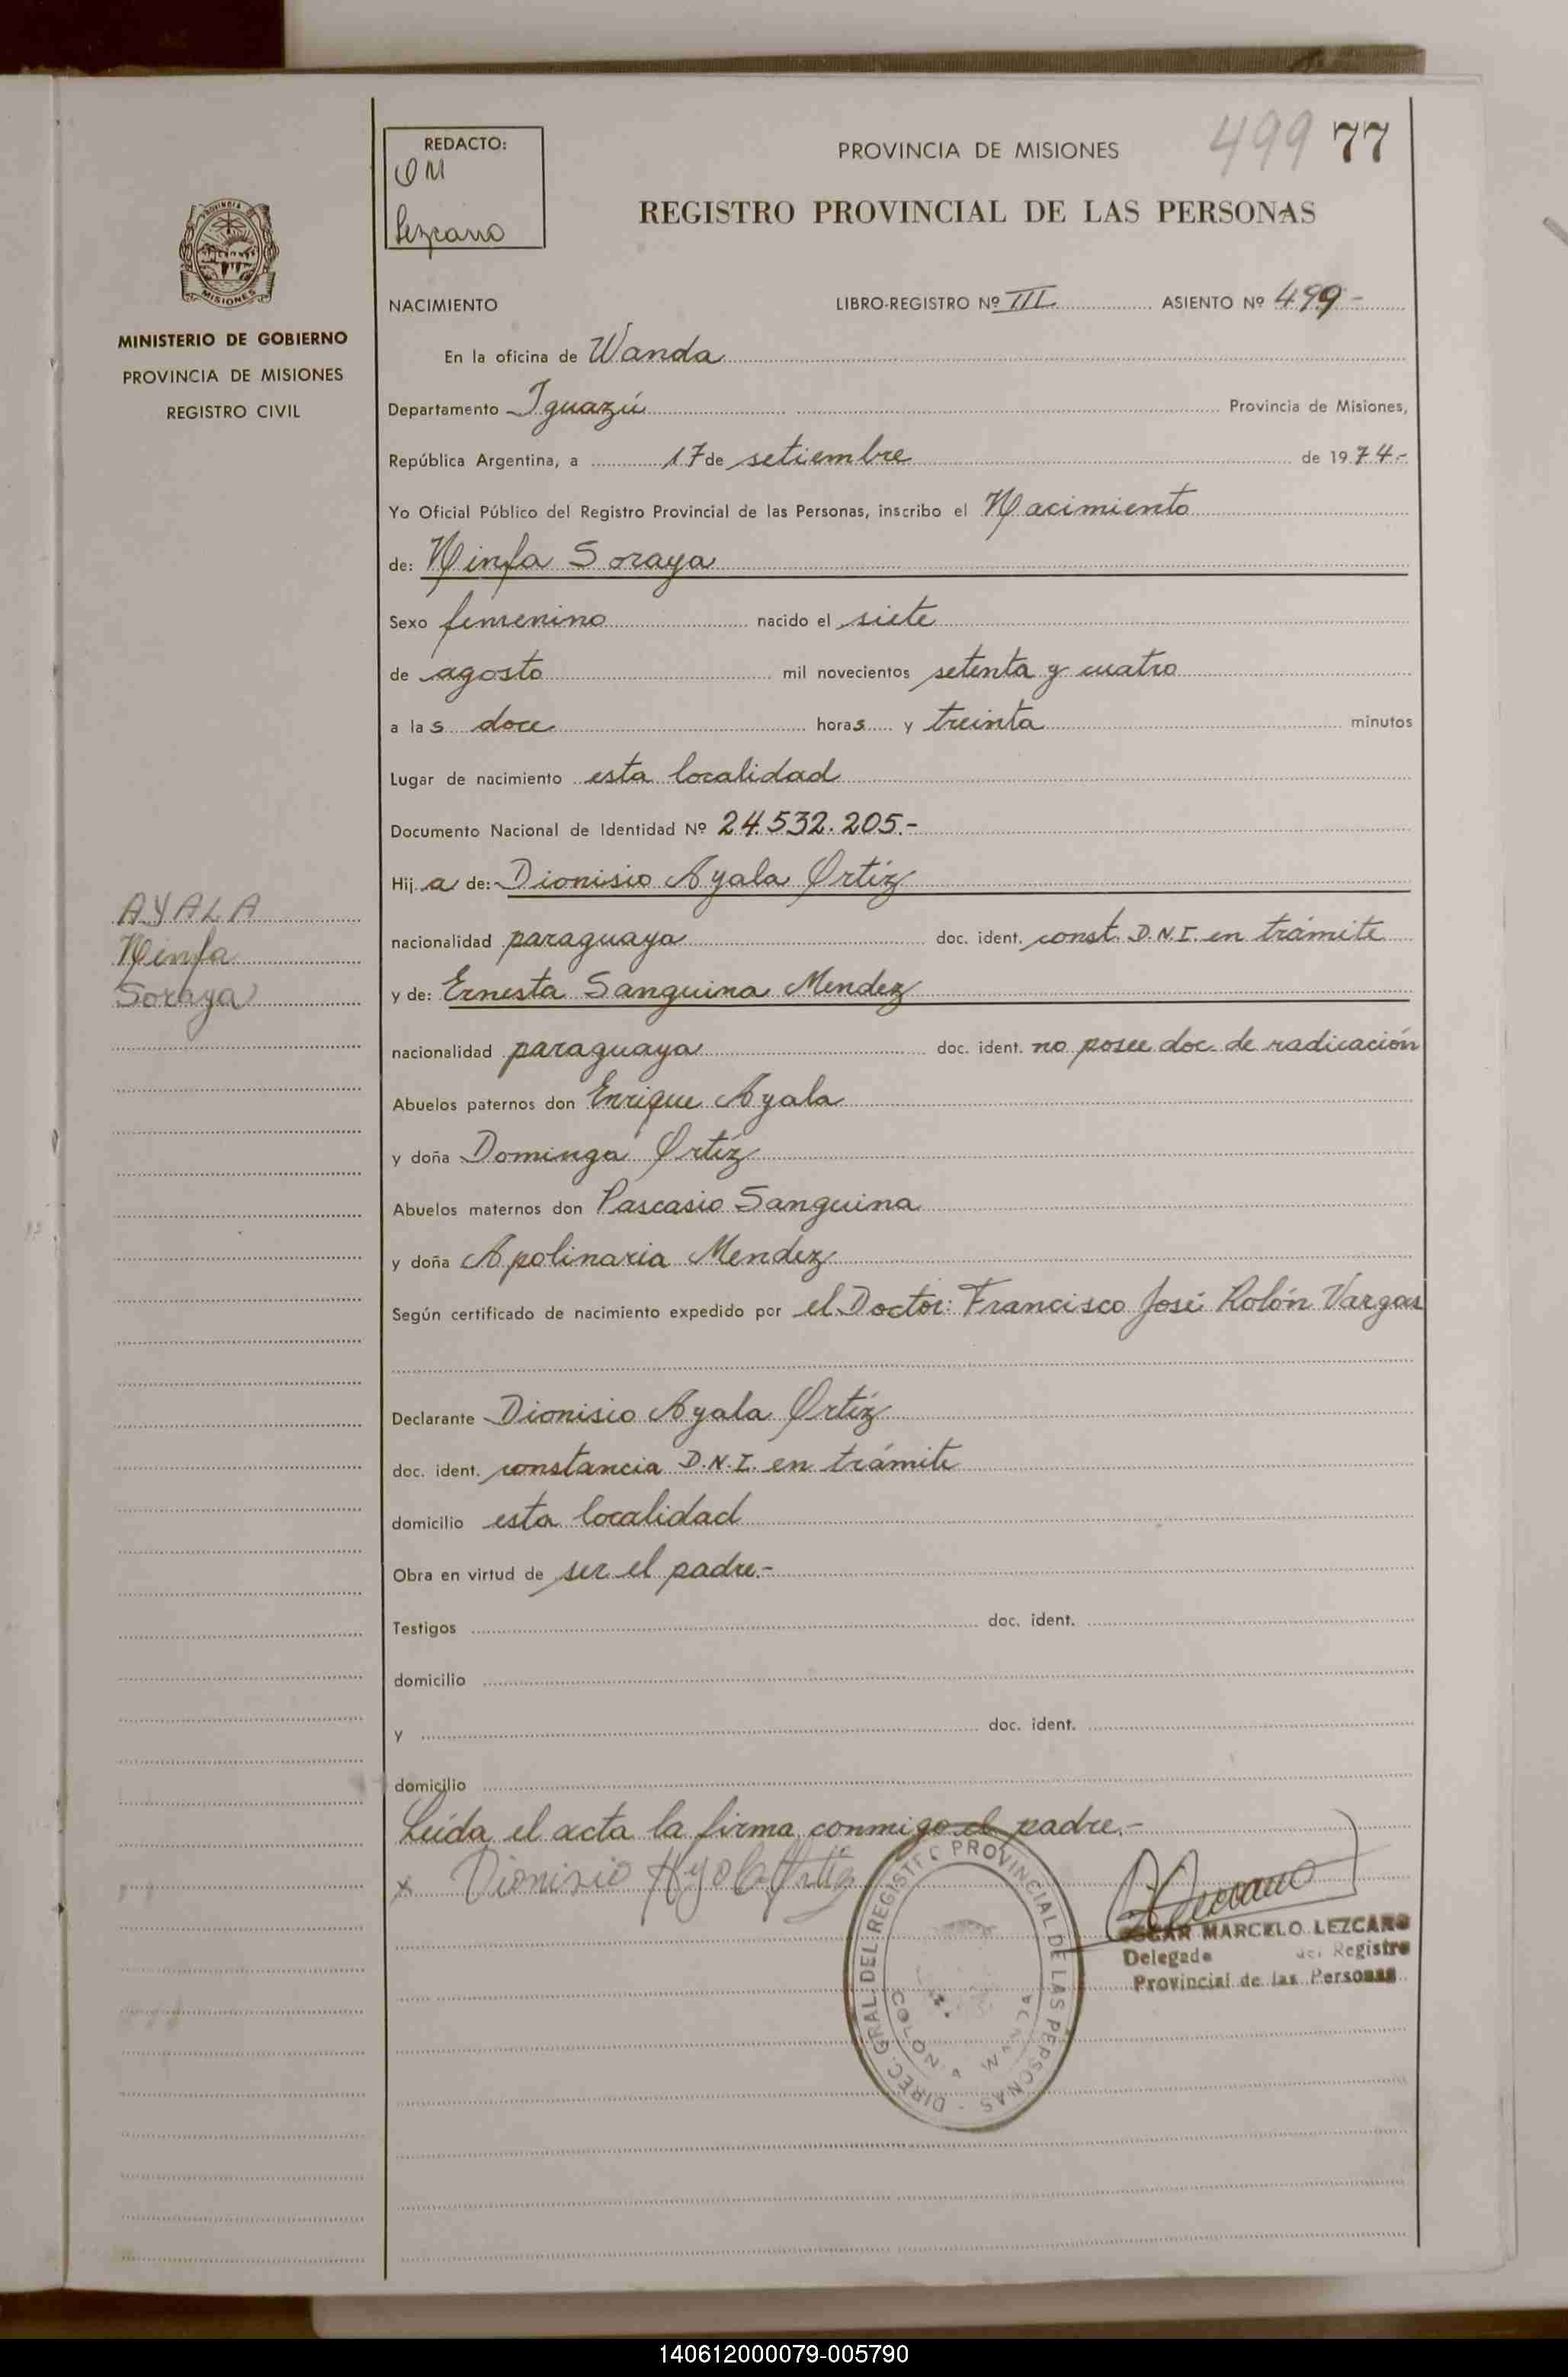 499 77
REDACTO:
OM
Lezcano
PROVINCIA DE MISIONES
REGISTRO PROVINCIAL DE LAS PERSONAS
PROVINCIA DE
MISIONES
MINISTERIO DE GOBIERNO
PROVINCIA DE MISIONES
REGISTRO CIVIL
NACIMIENTO LIBRO-REGISTRO Nº III ASIENTO Nº 499-
En la oficina de Wanda
Departamento Iguazú Provincia de Misiones,
República Argentina, a 17 de setiembre de 1974.-
Yo Oficial Público del Registro Provincial de las Personas, inscribo el Nacimiento
de: Ninfa Soraya
Sexo femenino nacido el siete
de agosto mil novecientos setenta y cuatro
a las doce horas y treinta minutos
Lugar de nacimiento esta localidad
Documento Nacional de Identidad Nº 24.532.205.-
Hija de: Dionisio Ayala Ortíz
AYALA
Ninfa
Soraya
nacionalidad paraguaya doc. ident. const. D.N.I. en trámite
y de: Ernesta Sanguina Mendez
nacionalidad paraguaya doc. ident. no posee doc. de radicación
Abuelos paternos don Enrique Ayala
y doña Dominga Ortíz
Abuelos maternos don Pascasio Sanguina
y doña Apolinaria Mendez
Según certificado de nacimiento expedido por el Doctor: Francisco José Rolón Vargas
Declarante Dionisio Ayala Ortíz
doc. ident. constancia D.N.I. en trámite
domicilio esta localidad
Obra en virtud de ser el padre.-
Testigos doc. ident.
domicilio
y doc. ident.
domicilio
Leída el acta la firma conmigo el padre.-
x Dionisio Ayala Ortiz
DIREC. GRAL. DEL REGISTRO PROVINCIAL DE LAS PERSONAS -
COLONIA WANDA
OSCAR MARCELO LEZCANO
Delegado del Registro
Provincial de las Personas
140612000079-005790